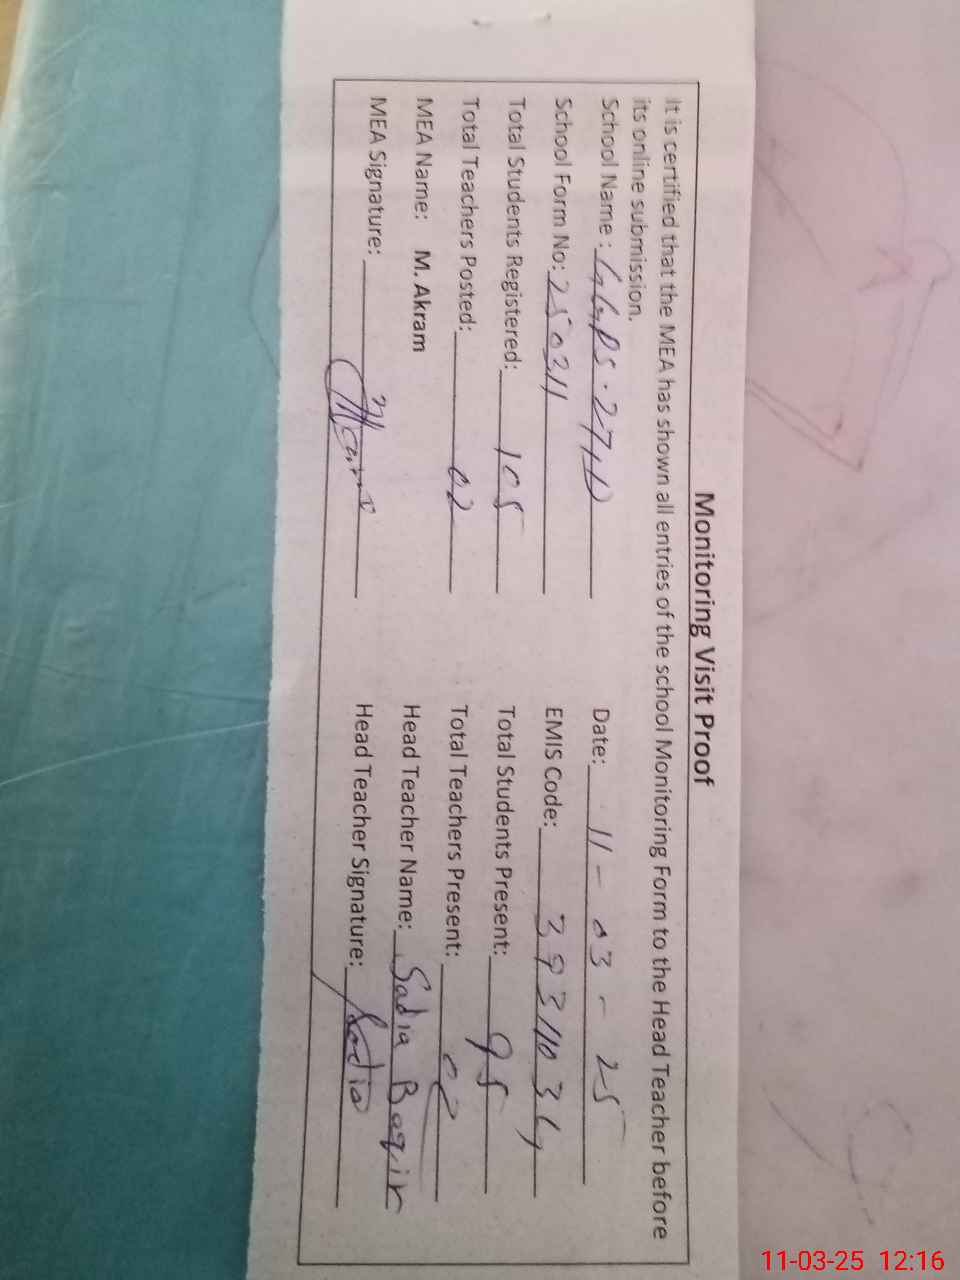 Monitoring Visit Proof
It is certified that the MEA has shown all entries of the school Monitoring Form to the Head Teacher before
its online submission.
School Name : GGPS. 27/D Date: 11-03-25
School Form No: 250311 EMIS Code:
Total Students Registered: 105 Total Students Present: 95
Total Teachers Posted: 02 Total Teachers Present: 02
MEA Name: M. Akram Head Teacher Name: Sadia Baqir
MEA Signature: Head Teacher Signature: Sadia
11-03-25 12:16